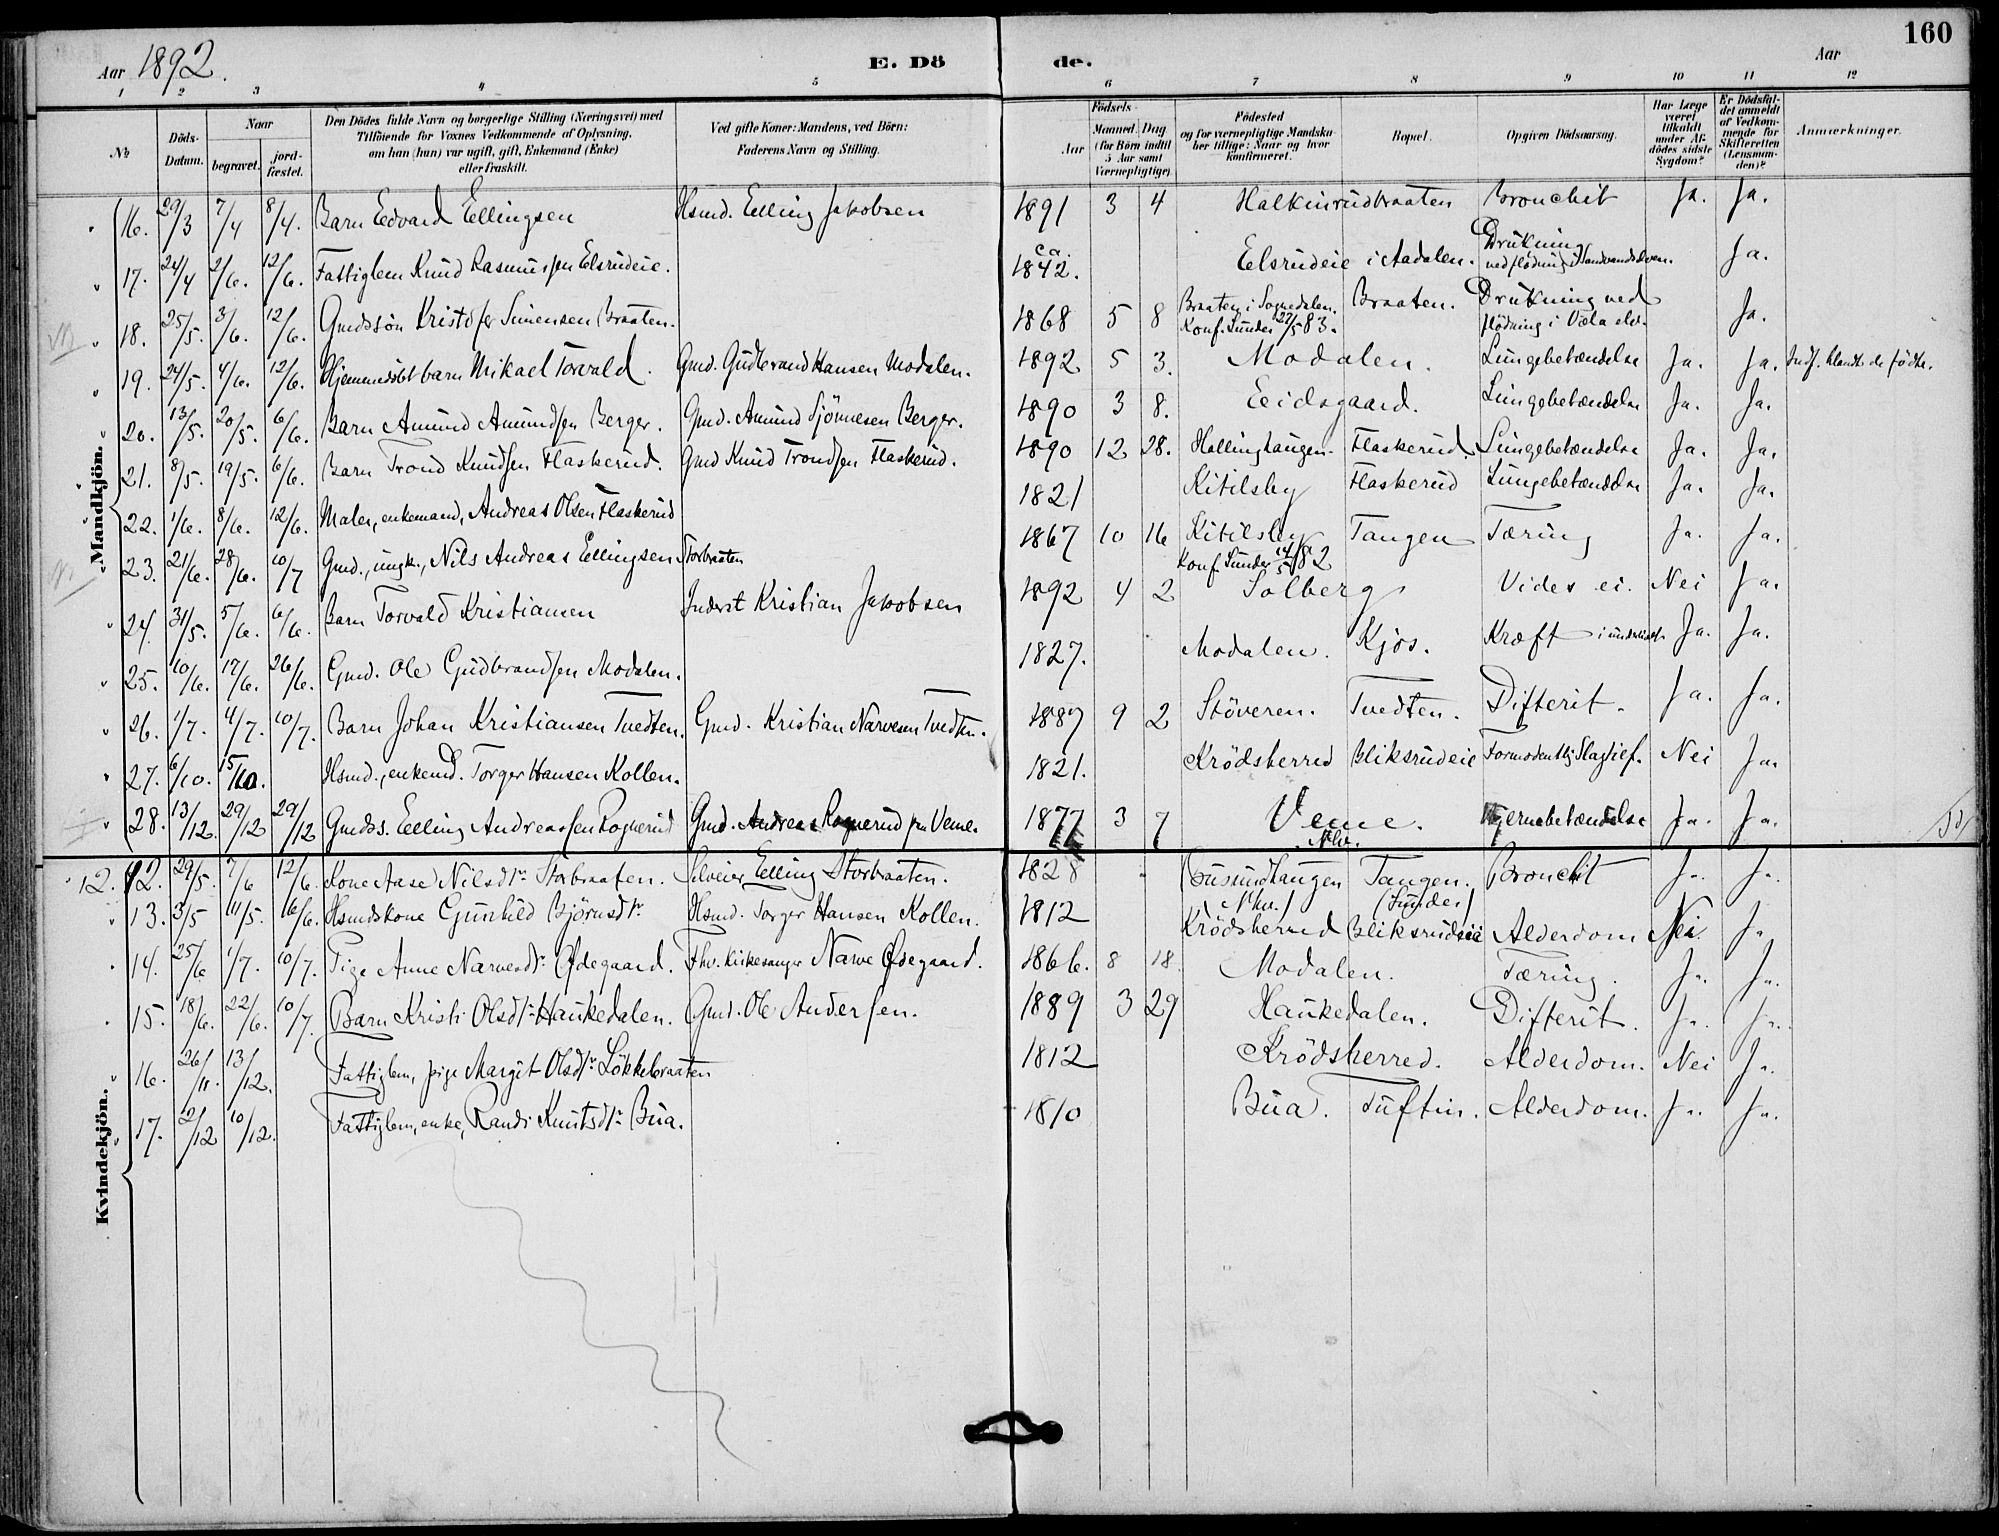 160
Aar 1892. E. Dö de. Aar
1 2 3 4 5 6 7 8 9 10 11 12
№ Döds-Datum. Naar begravet. jordfæstet. Den Dödes fulde Navn og borgerlige Stilling (Næringsvei) med Tilföiende for Voxnes Vedkommende af Oplysning, om han (hun) var ugift, gift, Enkemand (Enke) eller fraskilt. Ved gifte Koner: Mandens, ved Börn: Faderens Navn og Stilling. Födsels- Aar Maaned. Dag (for Börn indtil 5 Aar samt Værnepligtige). Födested og for værnepligtige Mandskaber tillige: Naar og hvor konfirmeret. Bopæl. Opgiven Dödsaarsag. Har Læge været tilkaldt under Afdödes sidste Sygdom? Er Dödsfaldet anmeldt af Vedkommende for Skifteretten (Lensmanden)? Anmærkninger.
Mandkjön.
16. 29/3 7/4 8/4. Barn Edvard Ellingsen Hsmd. Elling Jakobsen 1891 3 4 Halkinrudbraaten Bronchit Ja. Ja.
17. 24/4 2/6. 12/6. Fattiglem Knud Rasmussen Elsrudeie. ca. 1842. Elsrudeie i Aadalen. Drukning ved flödning i Ja.
18. 25/5. 3/6. 12/6. Gmdssön Kristofer Simensen Braaten. 1868 5 8 Braaten i Sognedalen. Konf. Lunder 22/5 83. Braaten. Drukning ved flödning i Væla elv. Ja.
19. 24/5. 4/6. 12/6. Hjemmedöbt barn Mikael Torvald. Gmd. Gudbrand Hansen Modalen. 1892 5 3. Modalen. Lungebetændelse Ja. Ja. Indf. blandt de födte.
20. 13/5. 20/5. 6/6. Barn Amund Amundsen Berger. Gmd. Amund Sjönnesen Berger. 1890 3 8. Eidsgaard. Lungebetændelse Ja. Ja.
21. 8/5. 19/5. 6/6. Barn Trond Knudsen Flaskerud. Gmd Knud Trondsen Flaskerud. 1890 12 28. Hallinghaugen. Flaskerud. Lungebetændelse Ja. Ja.
22. 1/6. 8/6. 12/6. Maler, enkemand, Andreas Olsen Flaskerud 1821 Kitilsby Flaskerud Lungebetændelse Ja. Ja.
23. 21/6. 28/6. 10/7 Gmd., ungk., Nils Andreas Ellingsen Storbraaten 1867 10 16 Kitilsby Konf. Lunder 14/5 82 Tangen Tæring Ja. Ja.
24. 31/5. 5/6. 6/6. Barn Torvald Kristiansen Inderst Kristian Jakobsen 1892 4 2 Solberg Vides ei. Nei Ja.
25. 10/6. 17/6. 26/6. Gmd. Ole Gudbrandsen Modalen. 1827. Modalen. Kjös. Kræft i underlivet. Ja. Ja.
26. 1/7. 4/7. 10/7. Barn Johan Kristiansen Tvedten. Gmd. Kristian Narvesen Tvedten. 1887 9 2 Stöveren. Tvedten. Difterit. Ja. Ja.
27. 6/10. 15/10. Hsmd., enkemd. Torger Hansen Kollen. 1821. Krödsherred Bliksrudeie Formodentlig Slagtilf. Nei Ja.
28. 13/12. 29/12 29/12 Gmdss. Elling Andreassen Rognerud Gmd. Andreas Rognerud paa Veme. 1877 3 7 Veme. Hjernebetændelse Ja. Ja.
Kvindekjön.
12. 12. 29/5. 7/6 12/6. Kone Aase Nilsdtr Storbraaten. Selveier Elling Storbraaten. 1828 Gusundhaugen Tangen. (Lunder) Bronchit Ja. Ja.
13. 3/5 11/5. 6/6. Hsmdskone Gunhild Björnsdtr Hsmd. Torger Hansen Kollen. 1812 Krödsherred Bliksrudeie Alderdom Nei Ja.
14. 25/6 1/7. 10/7. Pige Anne Narvesdtr Ødegaard. Fhv. Kirkesanger Narve Ødegaard. 1866. 8 18. Modalen. Tæring. Ja. Ja.
15. 18/6. 22/6. 10/7. Barn Kristi Olsdtr Haukedalen. Gmd. Ole Andersen. 1889 3 29 Haukedalen. Difterit. Ja. Ja.
16. 26/11. 13/12. Fattiglem, pige Margit Olsdtr Lökkebraaten 1812 Krödsherred. Alderdom. Nei Ja.
17. 2/12 10/12. Fattiglem, enke, Randi Knutsdtr Bua. 1810 Bua. Tuftin. Alderdom. Ja. Ja.